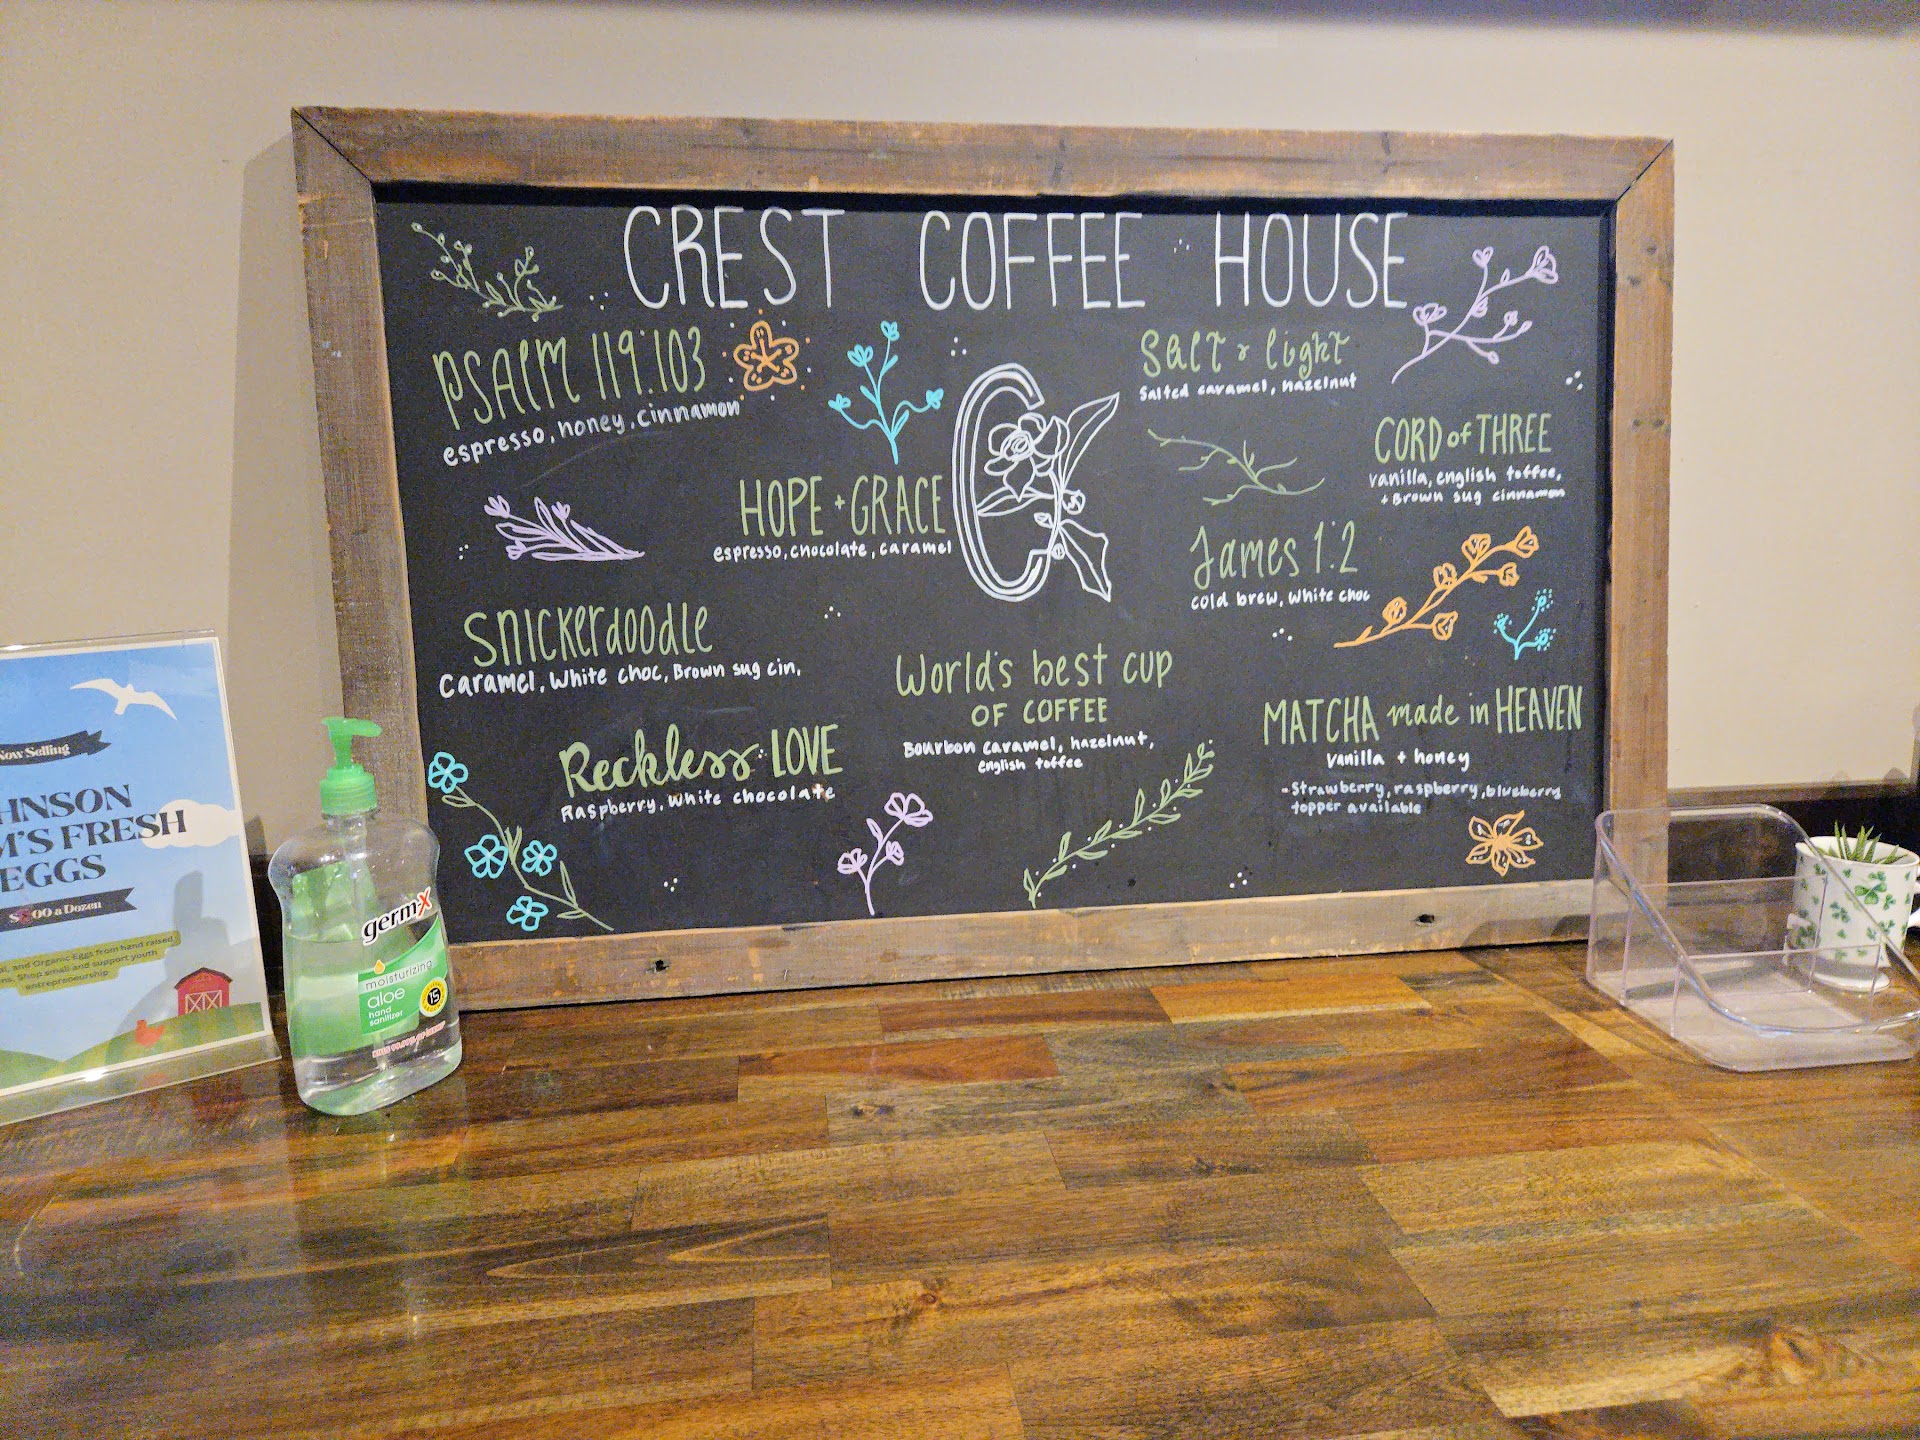 CREST COFFEE HOUSE
PSALM 119:103
espresso, honey, cinnamon
HOPE + GRACE
espresso, chocolate, caramel
Snickerdoodle
Caramel, White choc, Brown sug cin,
Reckless LOVE
Raspberry, White chocolate
World's best cup
OF COFFEE
Bourbon caramel, hazelnut,
english toffee
Salt & light
Salted caramel, hazelnut
CORD of THREE
vanilla, english toffee,
+ Brown sug cinnamon
James 1:2
cold brew, White choc
MATCHA made in HEAVEN
vanilla + honey
- Strawberry, raspberry, blueberry
topper available
Now Selling
HNSON
M'S FRESH
EGGS
00 a Dozen
al, and Organic Eggs from hand raised
ns. Shop small and support youth
entrepreneurship
germ-x
moisturizing
aloe
hand
sanitizer
15